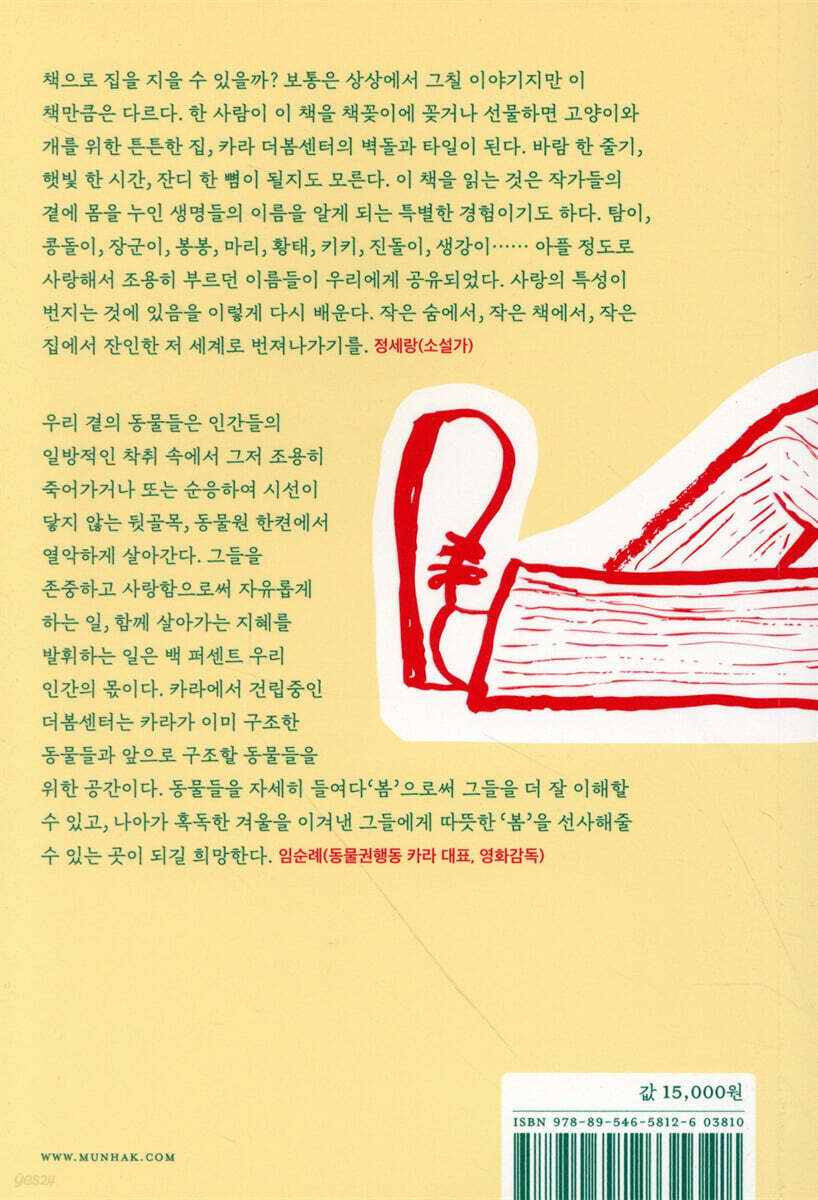 책으로 집을 지을 수 있을까? 보통은 상상에서 그칠 이야기지만 이
책만큼은 다르다. 한 사람이 이 책을 책꽂이에 꽂거나 선물하면 고양이와
개를 위한 튼튼한 집, 카라 더봄센터의 벽돌과 타일이 된다. 바람 한 줄기,
햇빛 한 시간, 잔디 한 뼘이 될지도 모른다. 이 책을 읽는 것은 작가들의
곁에 몸을 누인 생명들의 이름을 알게 되는 특별한 경험이기도 하다. 탐이,
콩돌이, 장군이, 봉봉, 마리, 황태, 키키, 진돌이, 생강이…… 아플 정도로
사랑해서 조용히 부르던 이름들이 우리에게 공유되었다. 사랑의 특성이
번지는 것에 있음을 이렇게 다시 배운다. 작은 숨에서, 작은 책에서, 작은
집에서 잔인한 저 세계로 번져나가기를. 정세랑(소설가)
우리 곁의 동물들은 인간들의
일방적인 착취 속에서 그저 조용히
죽어가거나 또는 순응하여 시선이
닿지 않는 뒷골목, 동물원 한켠에서
열악하게 살아간다. 그들을
존중하고 사랑함으로써 자유롭게
하는 일, 함께 살아가는 지혜를
발휘하는 일은 백 퍼센트 우리
인간의 몫이다. 카라에서 건립중인
더봄센터는 카라가 이미 구조한
동물들과 앞으로 구조할 동물들을
위한 공간이다. 동물들을 자세히 들여다‘봄’으로써 그들을 더 잘 이해할
수 있고, 나아가 혹독한 겨울을 이겨낸 그들에게 따뜻한 ‘봄’을 선사해줄
수 있는 곳이 되길 희망한다. 임순례(동물권행동 카라 대표, 영화감독)
값 15,000원
ISBN 978-89-546-5812-6 03810
WWW.MUNHAK.COM
yes24